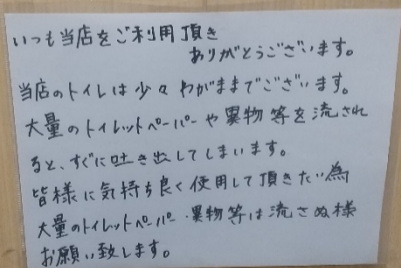 いつも当店をご利用頂き
ありがとうございます。
当店のトイレは少々わがままでございます。
大量のトイレットペーパーや異物等を流され
ると、すぐに吐き出してしまいます。
皆様に気持ち良く使用して頂きたい為
大量のトイレットペーパー・異物等は流さぬ様
お願い致します。